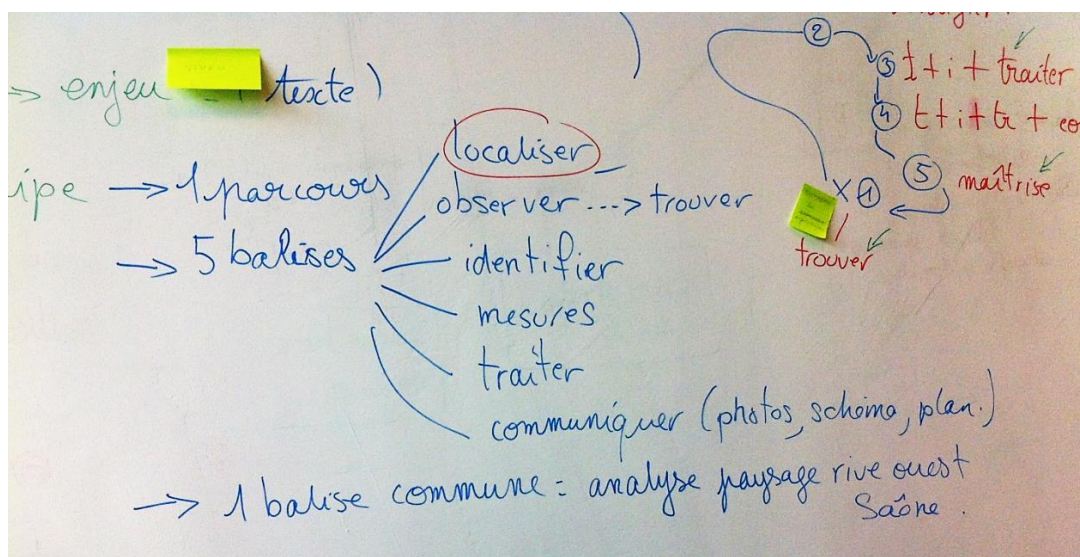 → enjeu texte)
→ 1 parcours
→ 5 balises
localiser
observer ...> trouver
identifier
mesures
traiter
communiquer (photos, schéma, plan.)
→ 1 balise commune = analyse paysage rive ouest
Saône.
2
3 t + i + traiter
4 t + i + tr + co
5 maîtrise
X 1
trouver